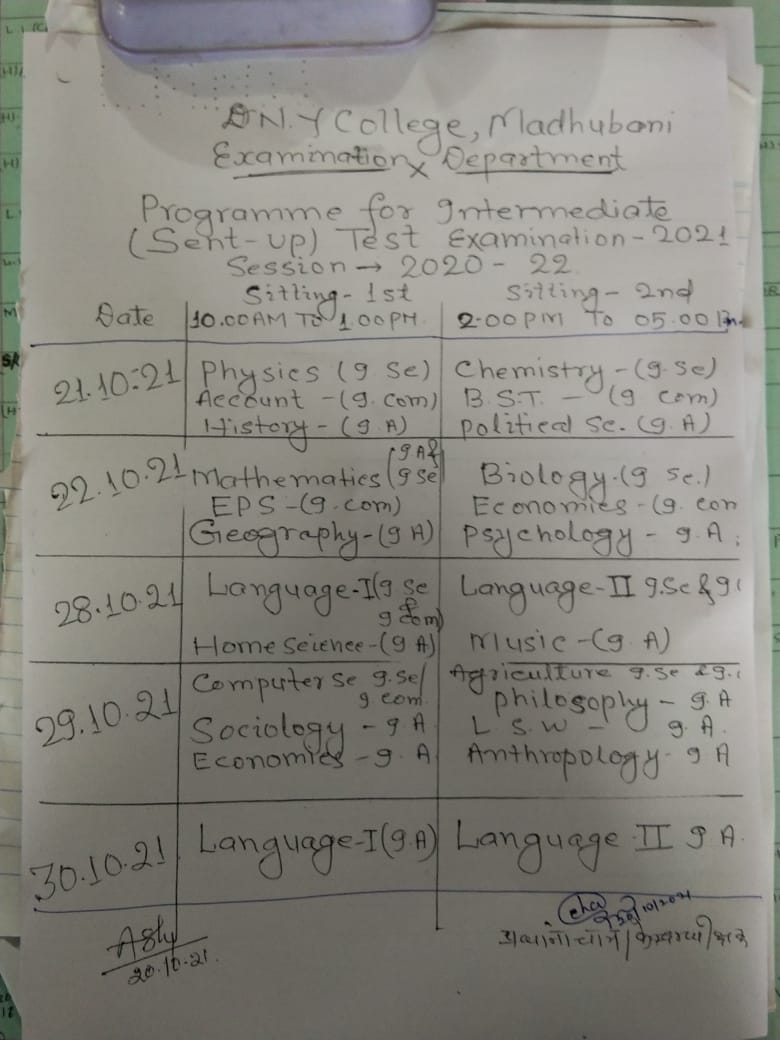 D.N.Y College, Madhubani
Examination Department
Programme for Intermediate
(Sent-up) Test Examination - 2021
Session → 2020 - 22
Sitting - 1st Sitting - 2nd
Date 10.00AM TO 1.00PM. 2.00PM To 05.00 Pm.
21.10.21 Physics (I Sc) Chemistry - (I. Sc)
Account - (I. Com) B.S.T. - (I Com)
History - (I. A) Political Sc. (I. A)
22.10.21 Mathematics (I A & I Sc) Biology - (I Sc.)
EPS - (I. com) Economics - (I. con
Geography - (I A) Psychology - I. A.
28.10.21 Language - I (I Sc & I Com) Language - II I.Sc &
Home Science - (I A) Music - (I. A)
29.10.21 Computer Sc I.Sc/ I com Agriculture I.Sc & I.
Philosophy - I. A
Sociology - I A L. S. W - I. A.
Economics - I. A Anthropology - I A
30.10.21 Language - I (I. A) Language II I A.
20.10.21